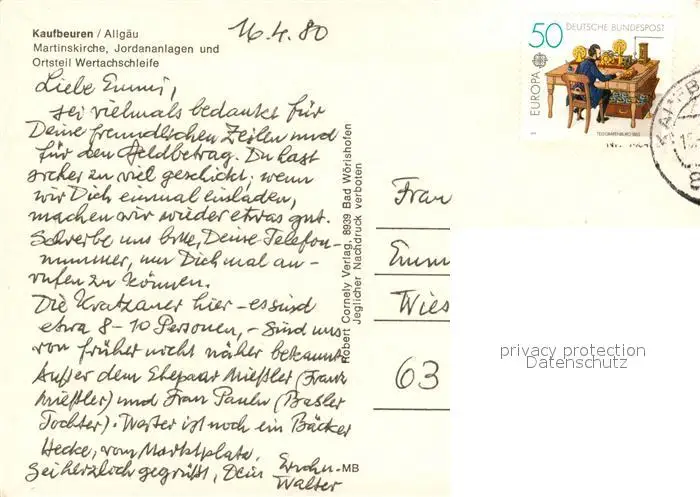 Kaufbeuren / Allgäu
Martinskirche, Jordananlagen und
Ortsteil Wertachschleife
16.4.80
Liebe Emmi,
sei vielmals bedankt für
Deine freundlichen Zeilen und
für den Geldbetrag. Du hast
sicher zu viel geschickt; wenn
wir Dich einmal einladen,
machen wir wieder etwas gut.
Schreibe uns bitte, Deine Telefon-
nummer, um Dich mal an-
rufen zu können.
Die Kratzauer hier - es sind
etwa 8-10 Personen, - sind uns
von früher nicht näher bekannt
Außer dem Ehepaar Mießler (Frank
Mießler) und Frau Pauln (Basler
Tochter). Weiter ist noch ein Bäcker
Hecke, vom Marktplatz.
Sei herzlich gegrüßt, Dein
Walter
MB
Robert Cornely Verlag, 8939 Bad Wörishofen
Jeglicher Nachdruck verboten
50
DEUTSCHE BUNDESPOST
EUROPA
CEPT
TELEGRAFENBÜRO 1863
KAUFB
Frau
Emm
Wies
63
privacy protection
Datenschutz